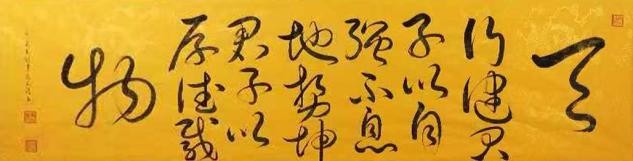 天
行健君
子以自
强不息
地势坤
君子以
厚德载
物